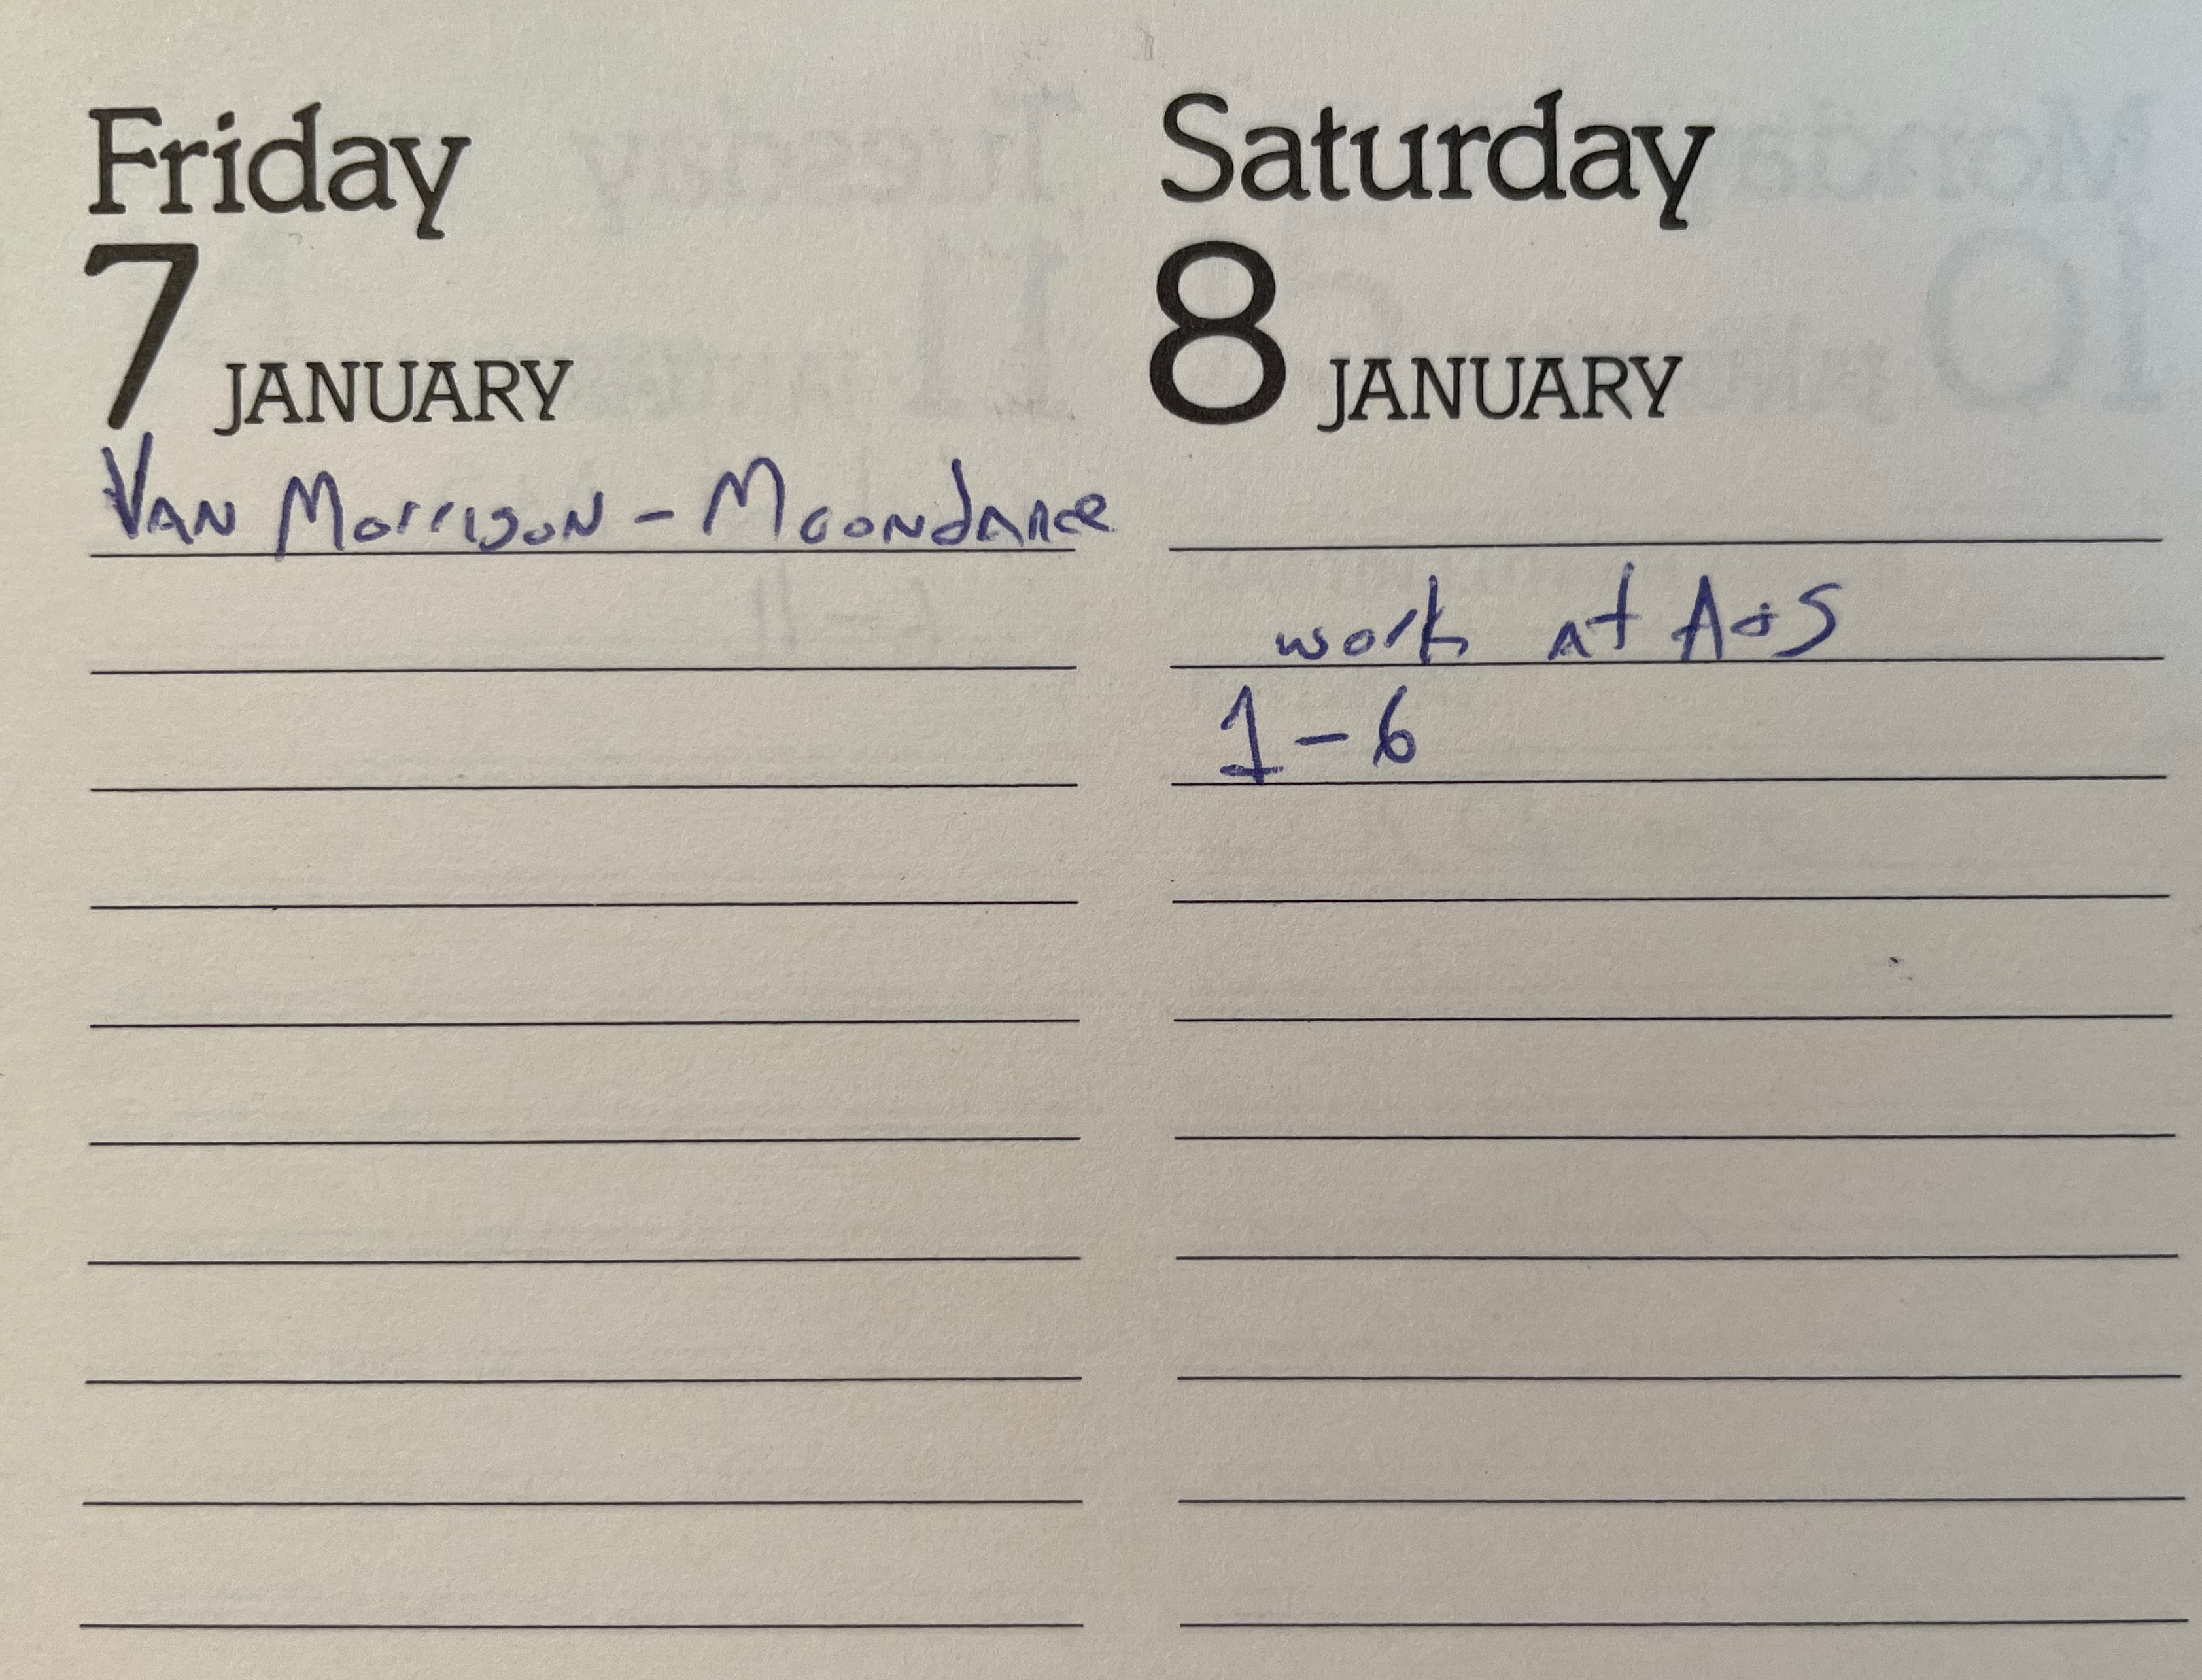 Friday
7 JANUARY
Van Morrison - Moondance
Saturday
8 JANUARY
work at A+S
1-6